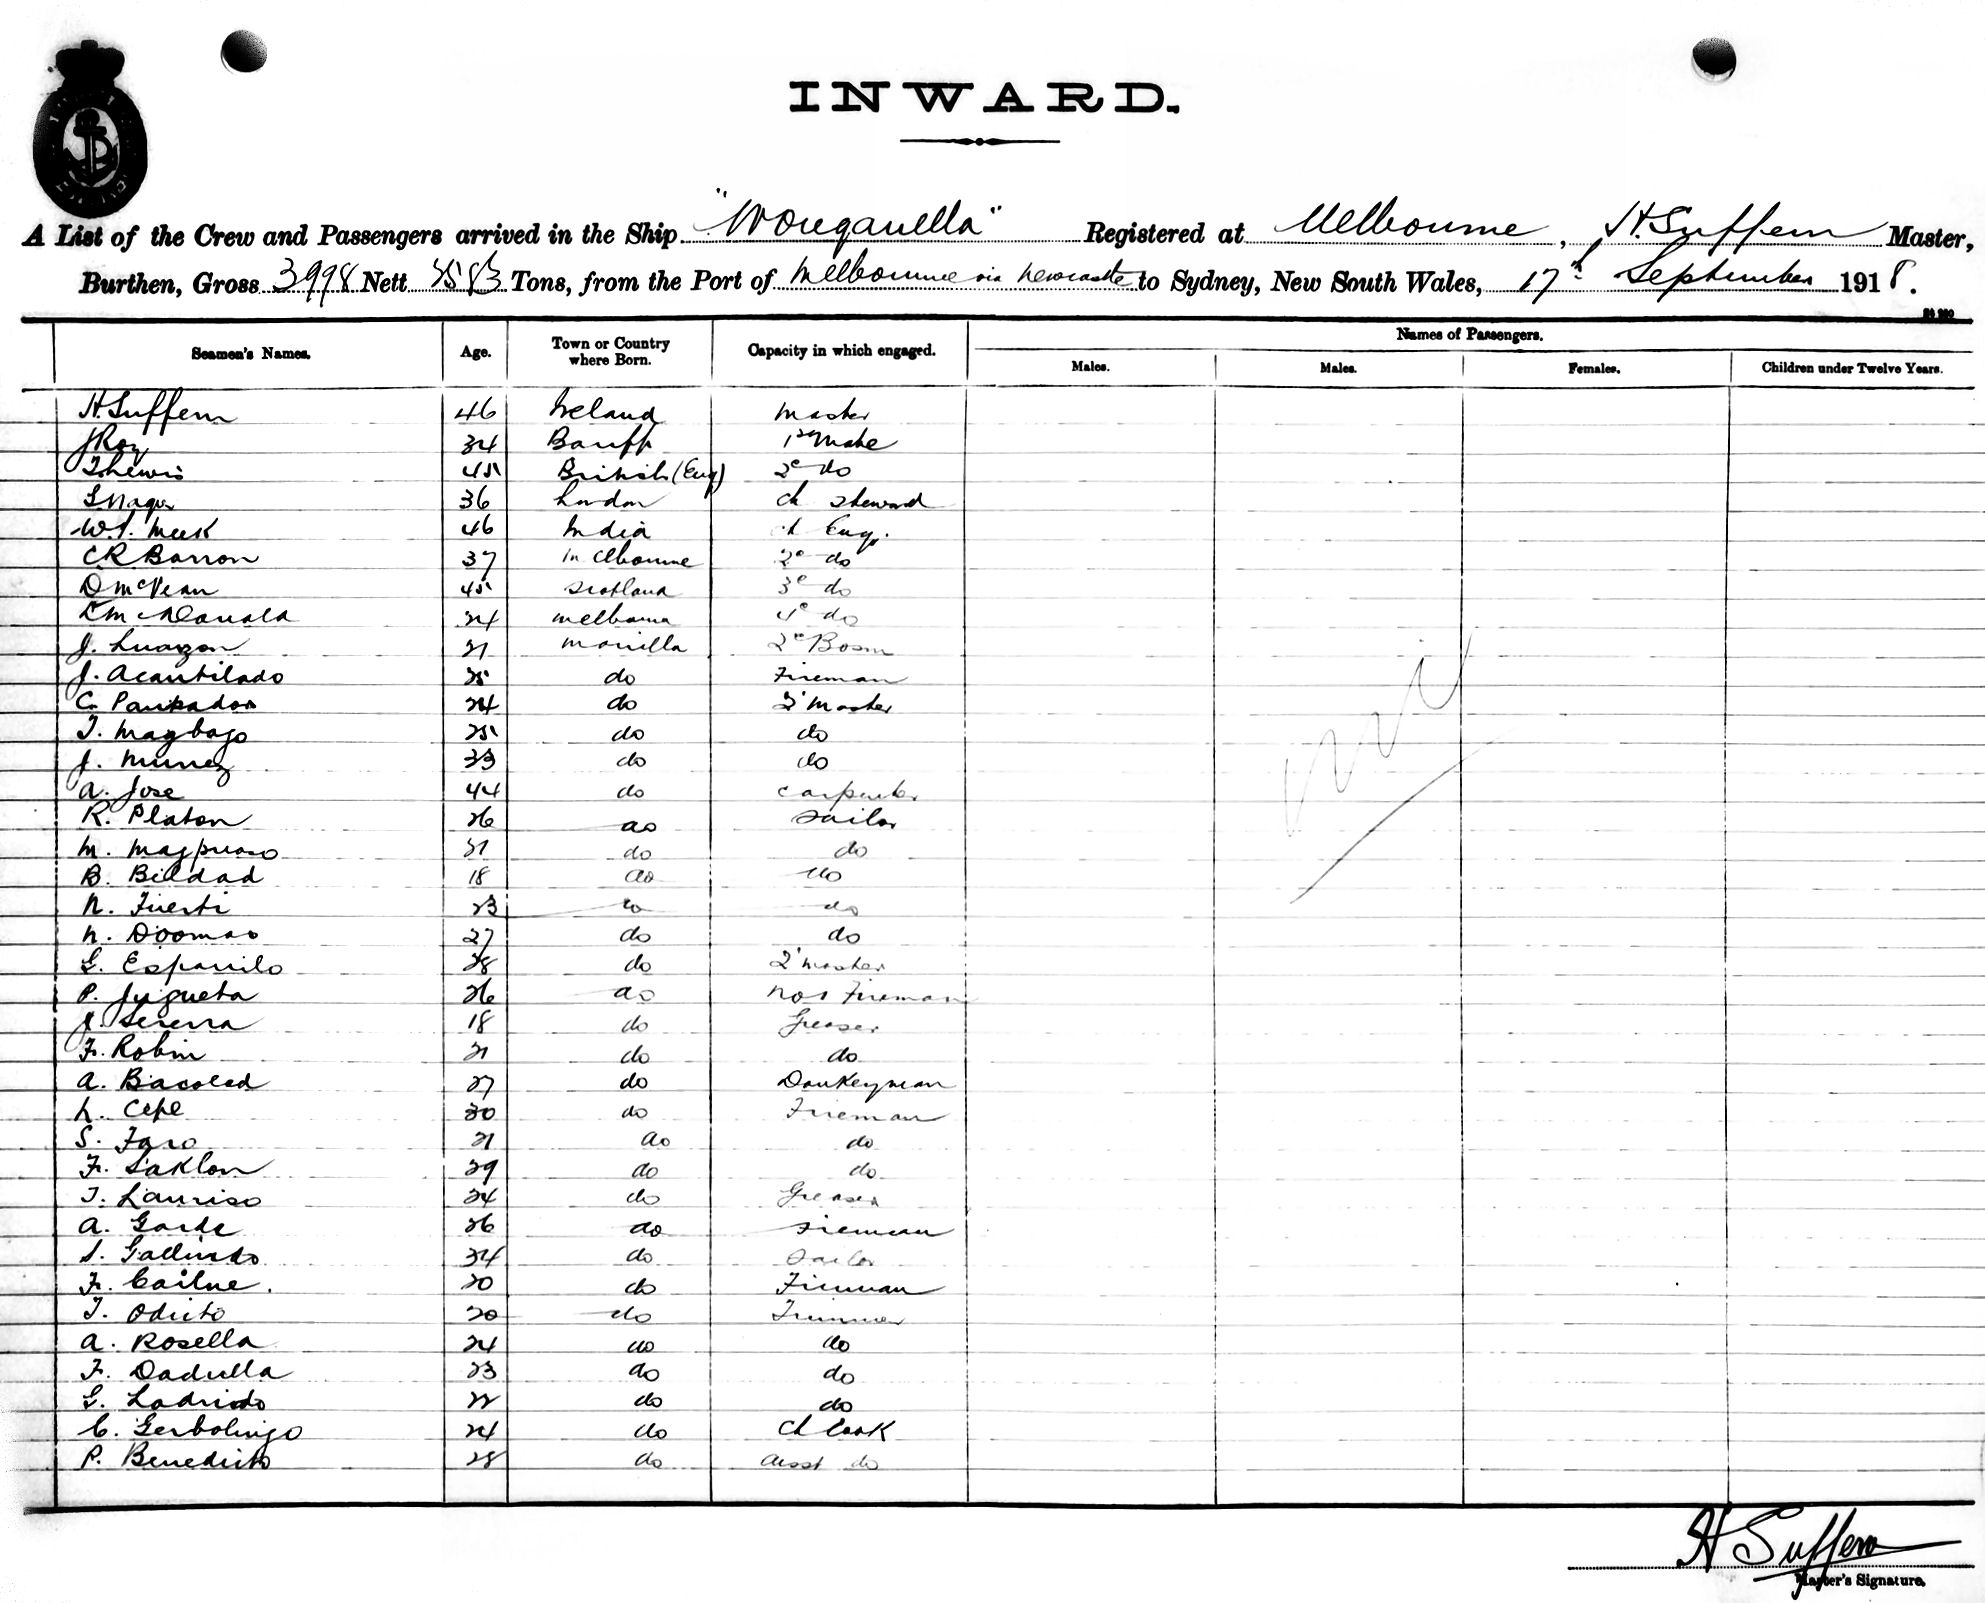 INWARD.
A List of the Crew and Passengers arrived in the Ship "Wonganella" Registered at Melbourne, H. Suffern Master,
Burthen, Gross 3998 Nett Tons, from the Port of Melbourne via Newcastle to Sydney, New South Wales, 17th September 1918.
Names of Passengers.
Seamen's Names. Age. Town or Country where Born. Capacity in which engaged. Males. Males. Females. Children under Twelve Years.
H. Suffern 46 Ireland Master
J Roy 34 Banff 1st Mate
T. Lewis 45 British (Eng) 2d do
36 London Ch Steward
W. J. Meek 46 India Ch Eng.
C R Barron 37 Melbourne 2d do
D McVean 45 Scotland 3d do
McDonald 24 Melbourne 4th do
J. Luazon 21 Manilla 2nd Bosn
J. Acantilado 25 do Fireman
C. 24 do Q'Master
T. Magbago 25 do do
J. Munez 33 do do
A. Jose 44 do Carpenter
R. Platon 26 do Sailor
M. 21 do do
B. Bildad 18 do do
N. Fuerti 23 do do
N. Doomao 27 do do
G. Espanilo 28 do Q'Master
P. Jugueta 26 do No 1 Fireman
J. Sererra 18 do Greaser
F. Robin 21 do do
A. Bacolod 27 do Donkeyman
L. Cepe 30 do Fireman
S. Faro 21 do do
F. Saklon 29 do do
T. Lauriso 24 do Greaser
A. Garde 26 do Fireman
S. Gallindo 34 do Sailor
F. Cailue. 20 do Fireman
T. Odisto 20 do Trimmer
A. Rosella 24 do do
F. Dadulla 23 do do
G. Ladrido 22 do do
C. Gerbolingo 24 do Ch Cook
P. Benedicto 28 do Asst do
nil
H Suffern
Master's Signature.